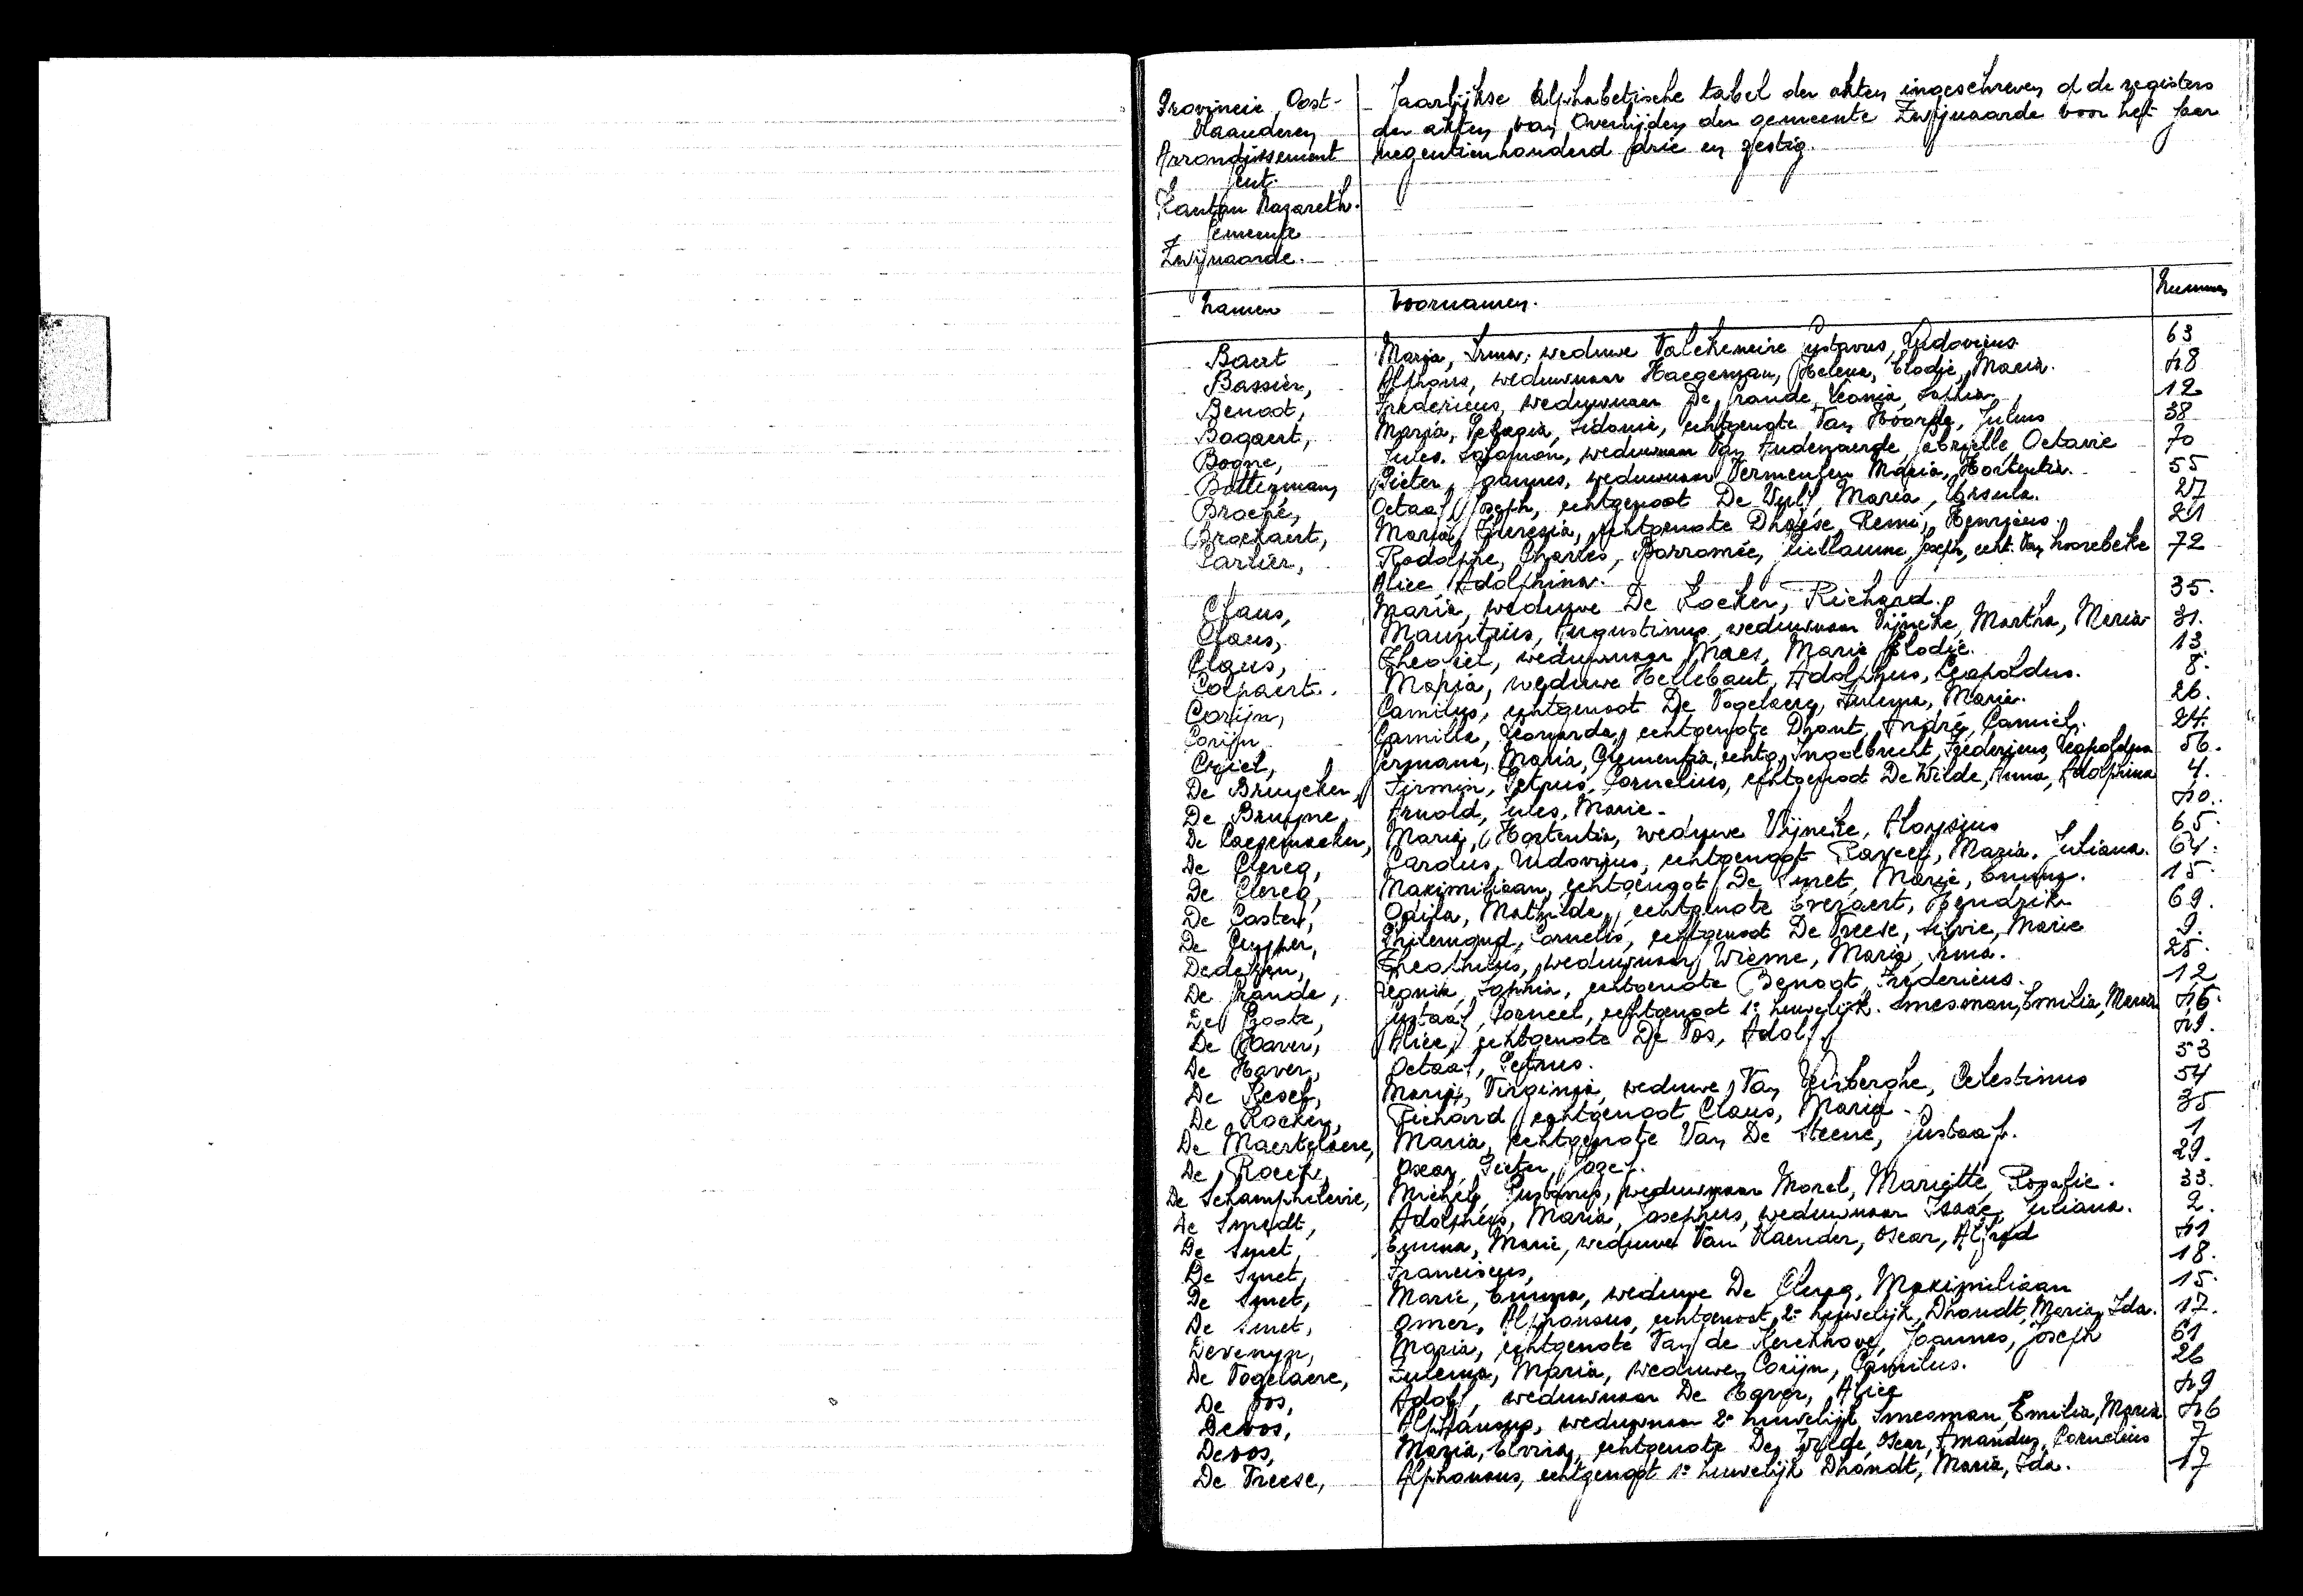 Provincie Oost-
Vlaanderen
Arrondissement
Gent.
Kanton Nazareth.
Gemeente
Zwijnaarde.
Jaarlijkse Alphabetische tabel der akten ingeschreven d de registers
der akten van Overlijden der gemeente Zwijnaarde voor het jaar
negentienhonderd drie en zestig.
Namen Voornamen. Nummers
Baert Maria, Irma, weduwe Valcheneire Gustavus, Ludovicus 63
Bassier, Alphons, weduwnaar Haegeman, Helena, Elodie, Maria. 48
Benoot, Fredericus, weduwnaar De Grande, Leonia, Sophia 12
Bogaert, Maria, Pelagia, Sidonie, echtgenote Van Hoorde, Julius 38
Bogne, Jules, Salomon, weduwnaar Van Audenaerde Gabrielle Octavie 70
Botterman, Pieter, Joannes, weduwnaar Vermeulen Maria, Hortentia. 55
Broché, Octaaf, Joseph, echtgenoot De Wulf, Maria, Ursula. 27
Brockaert, Maria, Theresia, echtgenote Dhaese, Remi, Henricus. 21
Carlier, Rodolphe, Charles, Borromée, Guillaume, Joseph, echt. Van Hoorebeke 72
Alice Adolphina.
Claus, Maria, weduwe De Kocker, Richard. 35.
Claus, Mauritius, Augustinus, weduwnaar Vijncke, Martha, Maria 31.
Claus, Theofiel, weduwnaar Maes, Marie Elodie. 13
Colpaert. Maria, weduwe Hellebaut, Adolphus, Leopoldus. 8.
Corijn, Camilus, echtgenoot De Vogelaere, Zulema, Maria. 26.
Corijn Camilla, Leonarda, echtgenote Dhont, André, Camiel. 24.
Criel, Germana, Maria, Clementia, echtg. Ingelbrecht, Fredericus, Leopoldus 56.
De Bruycker, Firmin, Petrus, Cornelius, echtgenoot De Wilde, Anna, Adolphina 4.
De Bruyne, Arnold, Jules, Marie. 40.
De Caesemaeker, Maria, Hortentia, weduwe Vijncke, Aloysius 65.
De Clercq, Carolus, Ludovicus, echtgenoot Raveel, Maria, Juliana. 64.
De Clercq, Maximiliaan, echtgenoot De Smet, Marie, Emma. 15.
De Coster, Odila, Mathilde, echtgenote Everaert, Hendrik 69.
De Cuyper, Philemond, Cornelis, echtgenoot De Vreese, Silvie, Marie 9.
Dedeken, Theophiel, weduwnaar Wieme, Maria Irma. 25.
De Grande, Leonia, Sophia, echtgenote Benoot, Fredericus. 12
De Groote, Gustaaf, Corneel, echtgenoot 1e huwelijk. Smesman, Emilia, Maria 46.
De Haver, Alice, echtgenote De Vos, Adolf. 49.
De Haver, Octaaf, Petrus. 53
De Kesel, Maria, Virginia, weduwe, Van Yserberghe, Celestinus 54
De Kocker, Richard, echtgenoot Claus, Maria. 35
De Maertelaere, Maria, echtgenote Van De Steene, Gustaaf. 1
De Roeck, Oscar, Pieter, Jozef. 29.
De Schamphelaere, Michel, Gustavus, weduwnaar Morel, Mariette Rosalie. 33.
De Smedt, Adolpheus, Maria, Josephus, weduwnaar Isaac, Juliana. 2.
De Smet, Emma, Marie, weduwe Van Vlaender, Oscar, Alfred 41
De Smet, Franciscus, 18.
De Smet, Marie, Emma, weduwe De Clercq, Maximiliaan 15.
De Smet, Omer, Alphonsus, echtgenoot, 2e huwelijk, Dhondt, Maria, Ida. 17.
Devenyn, Maria, echtgenote Van de Kerckhove, Joannes, Joseph 61
De Vogelaere, Zulema, Maria, weduwe, Corijn, Camilus. 26
De Vos, Adolf, weduwnaar De Haver, Alice 49
Devos, Alphonsus, weduwnaar 2e huwelijk, Smesman, Emilia, Maria 46
Devos, Maria, Elvira, echtgenote De Wilde, Oscar, Amandus, Cornelius 7
De Vreese, Alphonsus, echtgenoot 1e huwelijk Dhondt, Maria, Ida. 17